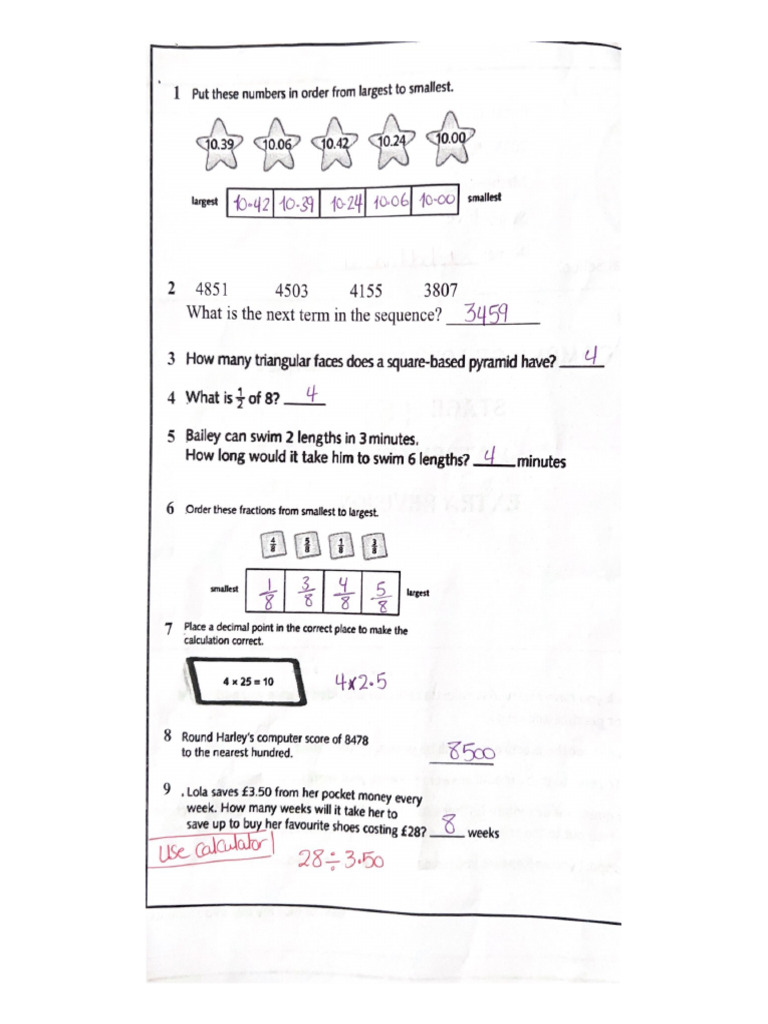 1 Put these numbers in order from largest to smallest.
10.39 10.06 10.42 10.24 10.00
largest 10.42 10.39 10.24 10.06 10.00 smallest
2 4851 4503 4155 3807
What is the next term in the sequence? 3459
3 How many triangular faces does a square-based pyramid have? 4
4 What is 1/2 of 8? 4
5 Bailey can swim 2 lengths in 3 minutes.
How long would it take him to swim 6 lengths? 4 minutes
6 Order these fractions from smallest to largest.
4/8 5/8 1/8 3/8
smallest 1/8 3/8 4/8 5/8 largest
7 Place a decimal point in the correct place to make the
calculation correct.
4 × 25 = 10 4×2.5
8 Round Harley's computer score of 8478
to the nearest hundred. 8500
9 . Lola saves £3.50 from her pocket money every
week. How many weeks will it take her to
save up to buy her favourite shoes costing £28? 8 weeks
Use calculator 28÷3.50